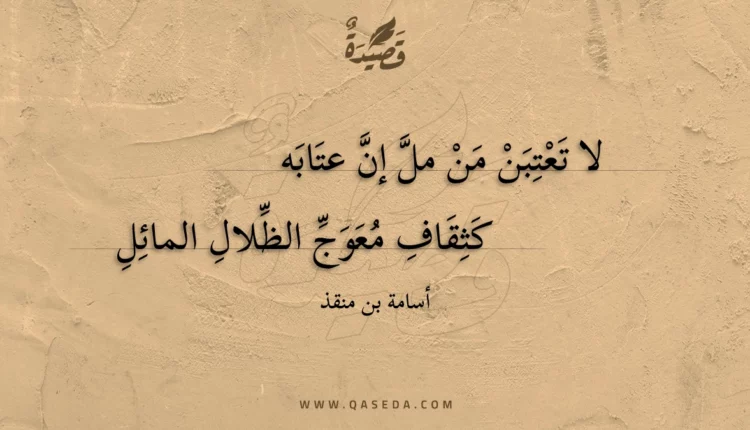 قَصِيدَةٌ
لا تَعْتِبَنْ مَنْ ملَّ إنَّ عتَابَه
كَثِقَافِ مُعَوَجِّ الظِّلالِ المائِلِ
أسامة بن منقذ
WWW.QASEDA.COM